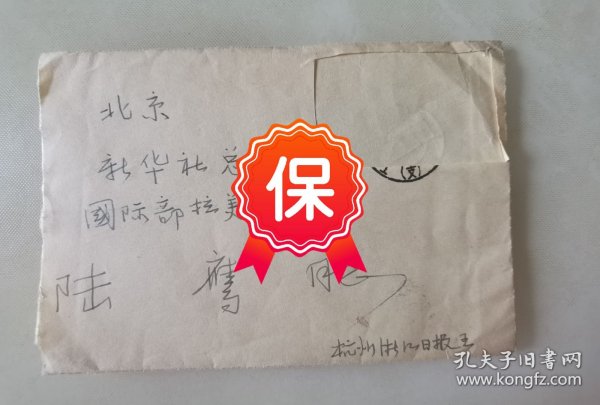 北京
新华社总
國际部拉美
保
(支)
陆鹰
杭州浙江日报王
孔夫子旧书网
www.kongfz.com